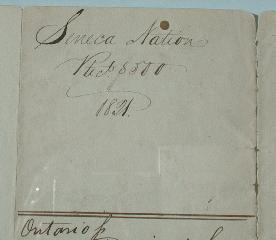 Seneca Nation
Rect $500
1821.
Ontario